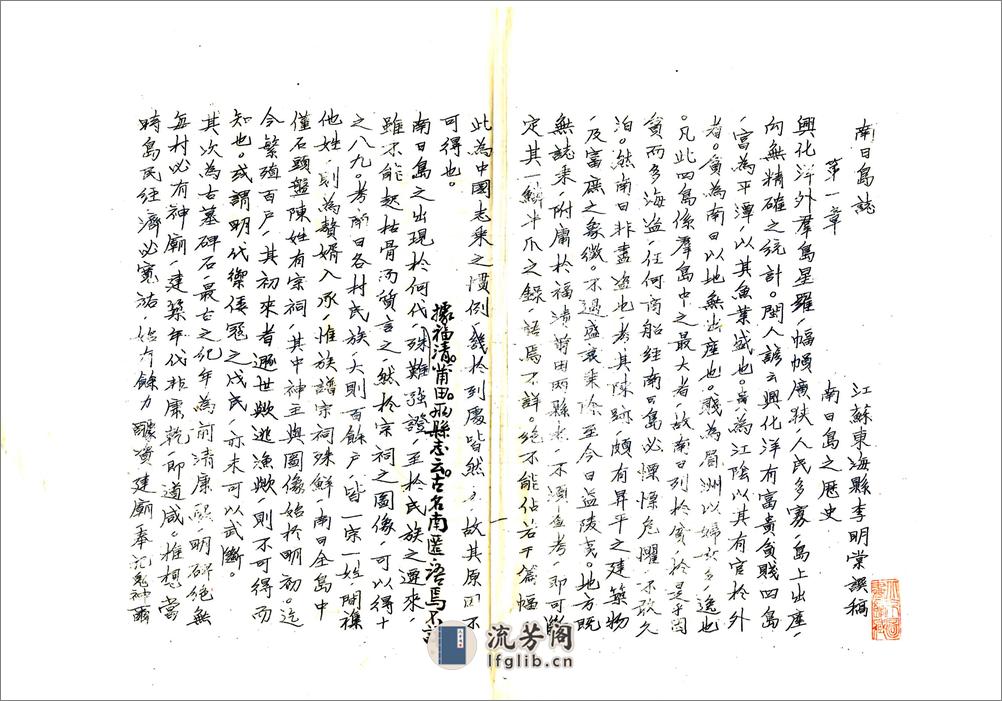 南日島誌
江蘇東海縣李明棠譔稿
第一章
南日島之歷史
興化洋外羣島星羅，幅幀廣狹，人民多寡，島上出產，
向無精確之統計。閩人諺云興化洋有富貴貧賤四島
，富為平潭，以其魚業盛也。貴為江陰以其有官於外
者。貧為南日以地無出產也。賤為眉洲以婦女多逸也
。凡此四島係羣島中之最大者，故南日列於貧，於是于因
貧而多海盜，任何商船經南日島必慄慄危懼，不敢久
泊。然南日非盡盜也考其陳跡頗有昇平之建築物
，及富庶之象徵。不過盛衰乘除至今日益陵夷。地方既
無誌乘附庸於福清莆田兩縣志，不須查考，即可斷
定其一鱗半爪之錄，語焉不詳。絕不能佔若干篇幅
此為中國志乘之慣例，幾於到處皆然，故其原因不
可得也。
據福清。莆田。兩縣志云。古名南匿。語焉不詳
南日島之出現於何代，殊難強證，至於民族之遷來，
雖不能起枯骨而質言之，然於宗祠之圖像，可以得十
之八九。考南日各村民族，大則百餘戶，皆一宗一姓，間雜
他姓，則為贅婿入承，惟族譜宗祠殊鮮，南日全島中
僅石頭盤陳姓有宗祠，其中神主與圖像始於明初。迄
今繁殖百戶，其初來者遯世歟逃漁歟則不可得而
知也。或謂明代禦倭寇之戍民，亦未可以武斷。
其次為古墓碑石，最古之紀年為前清康熙，明碑絕無
每村必有神廟，建築年代非康乾，即道咸。推想當
時島民經濟必寬裕，始有餘力醵資建廟奉祀鬼神爾
流芳阁
lfglib.cn